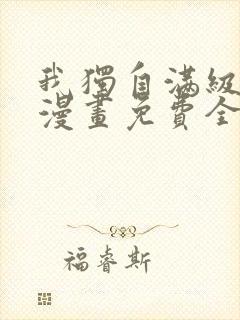 我獨自滿級
漫畫免費全
福睿斯